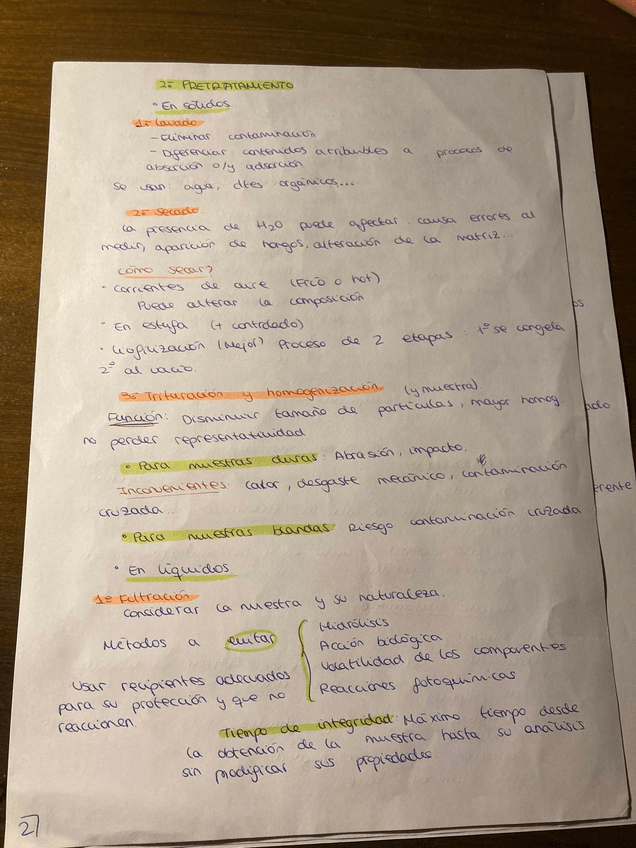 2º PRETRATAMIENTO
• En sólidos
1º Lavado
- Eliminar contaminación
- Diferenciar contenidos atribuibles a procesos de
absorción o/y adsorción
Se usan: agua, dtes orgánicos...
2º Secado
La presencia de H₂O puede afectar: causa errores al
medir, aparición de hongos, alteración de la matriz...
¿Cómo secar?
• Corrientes de aire (Frío o hot)
Puede alterar la composición
• En estufa (+ controlado)
• Liofilización (Mejor) Proceso de 2 etapas: 1º se congela
2º al vacío.
3º Trituración y homogenización (y muestra)
Función: Disminuir tamaño de partículas, mayor homog
no perder representatividad
• Para muestras duras: Abrasión, impacto.
Inconvenientes: Calor, desgaste mecánico, contaminación
cruzada...
• Para muestras blandas Riesgo contaminación cruzada
• En líquidos
1º Filtración
Considerar la muestra y su naturaleza.
Métodos a evitar
Hidrólisis
Acción biológica
Volatilidad de los componentes
Reacciones fotoquímicas
Usar recipientes adecuados
para su protección y que no
reaccionen.
Tiempo de integridad: Máximo tiempo desde
la obtención de la muestra hasta su análisis
sin modificar sus propiedades
2
os
ado
erente